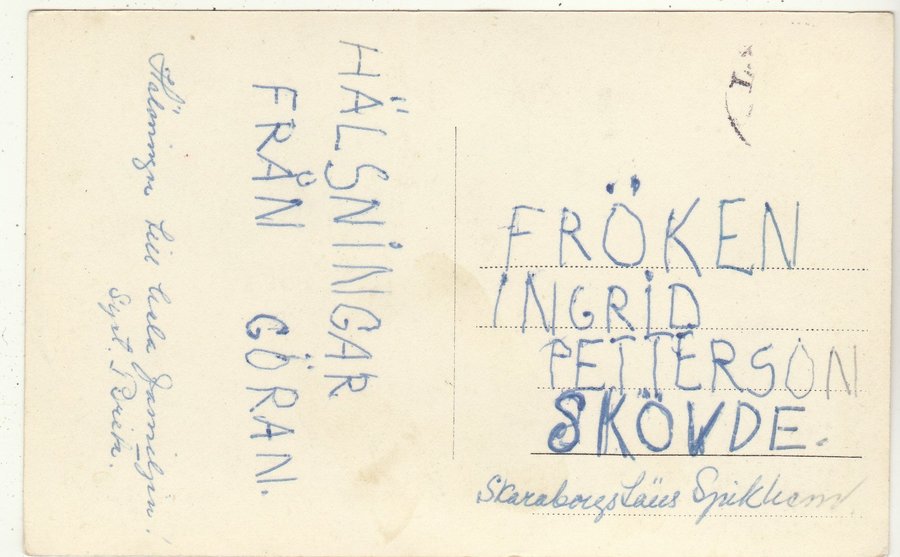 HÄLSNINGAR
FRÅN GÖRAN.
Hälsningar till hela familjen!
Syst. Brita.
FRÖKEN
INGRID
PETTERSON
SKÖVDE.
Skaraborgs Läns